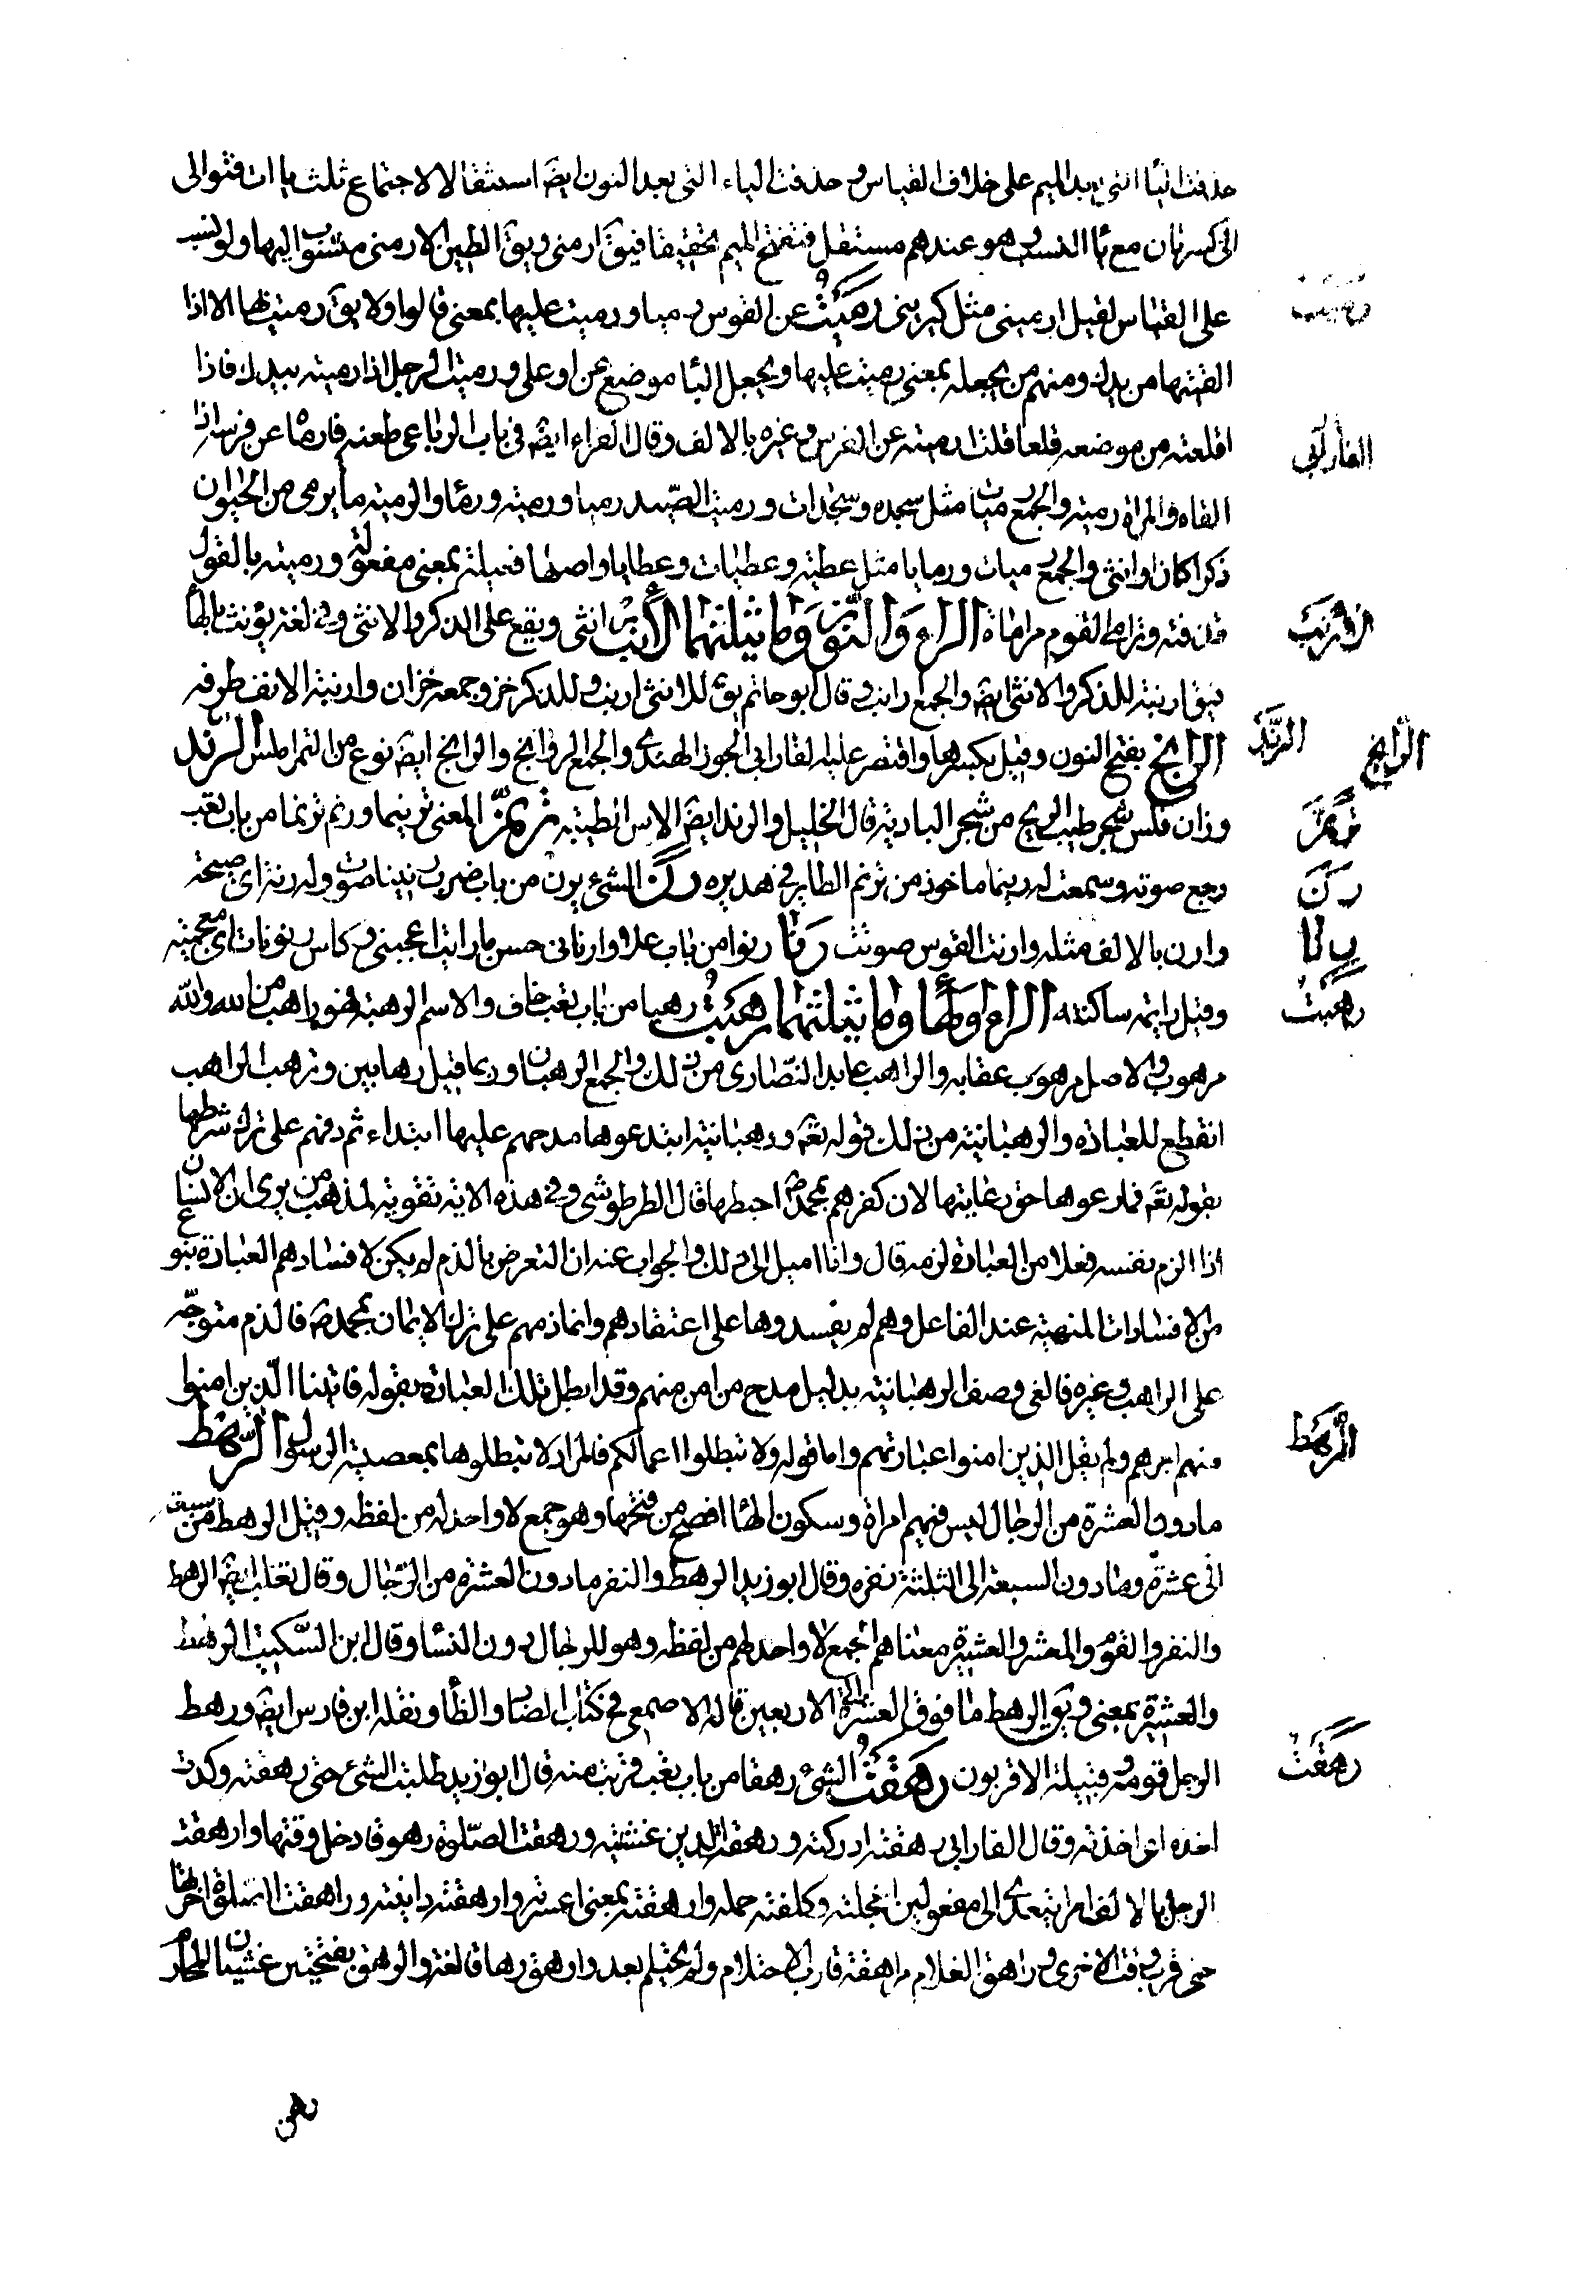 حذفت الياء التي بعد الميم على خلاف القياس و حذفت الياء التي بعد النون ايضَ استثقالا لاجتماع ثلث ياات فتوالى
الى كسرتان مع ياا النسب و هو عندهم مستثقل فتفتح الميم تخفيفا فيقَ ارمنى ويقَ الطين الارمنى منسوب اليها ولو نسب
على القياس لقيل ارمينى مثل كبريتى رَمَيْتُ عن القوس رميا ورميت عليها بمعنى قالوا ولا يقَ رميت بها الا اذا
القيتها من يدك ومنهم من يجعله بمعنى رميت عليها ويجعل البا موضع عن او على و رميت الرجل اذا رميته بيدك فاذا
اقلعته من موضعه قلعا قلت ارميته عن الفرس و غيره بالالف وقال الفارابى ايضَ فى باب الرباعى طعنه فارماه عن فرسه اذا
القاه و المرة رمية والجمع رميات مثل سجده وسجدات ورميت الصيد رميا ورمية ورماء والرمية ما يرمى من الحيوان
ذكرا كان او انثى والجمع رميات ورمايا مثل عطية وعطيات وعطايا واصلها فعيلة بمعنى مفعولة ورميته بالقول
قذفته وترامى القوم مراماة الراء والنون وما يثلثهما الارنب انثى ويقع على الذكر والانثى وفى لغة يؤنث بالهاء
فيقَ ارنبة للذكر والانثى ايضَ والجمع ارانب و قال ابو حاتم يقَ للانثى ارنب و للذكر خزز وجمعه خزان وارنبة الانف طرفه
الرانج بفتح النون وقيل بكسرها واقتصر عليه الفارابى الجوز الهندى والجمع الروانج والرانج ايضَ نوع من التمر املس الرند
وزان فلس شجر طيب الريح من شجر البادية قال الخليل والرند ايضَ الاس لطيبه ترنم المغنى ترنيما ورنم ترنما من باب تعب
رجع صوته وسمعت له رنيما ماخوذ من ترنم الطاير فى هديره رن الشىء يرن من باب ضرب رنينا صوت وله رنة اى صيحة
وارن بالالف مثله وارنت القوس صوتت رنا رنوا من باب علا وارنانى حسن ما رايت اعجبنى و كاس رنوناة اى معجبة
وقيل دايمة ساكنة الراء والها وما يثلثهما رهبت رهبا من باب تعب خاف والاسم الرهبة فهو راهب من الله والله
مرهوب والاصل مرهوب عقابه والراهب عابد النصارى من ذلك والجمع الرهبان وربما قيل رهابين وترهب الراهب
انقطع للعبادة والرهبانية من ذلك قوله تعَ ورهبانية ابتدعوها مدحهم عليها ابتداء ثم ذمهم على ترك شرطها
بقوله تعَ فما رعوها حق رعايتها لان كفرهم بمحمد صَ احبطها قال الطرطوشى وفى هذه الاية تقوية لمذهب من يرى ان الانسان
اذا الزم نفسه فعلا من العبادة لزمه قال وانا اميل الى ذلك والجواب عنه ان التعرض بالذم لم يكن لافسادهم العبادة بنوع
من الافسادات المنهية عند الفاعل وهم لم يفسدوها على اعتقادهم وانما ذمهم على ترك الايمان بمحمد صَ فالذم متوجه
على الراهب و غيره فالغى وصف الرهبانية بدليل مدح من امن منهم وقد ابطل تلك العبادة بقوله فاتينا الذين امنوا
منهم اجرهم ولم يقل الذين امنوا عبادتهم واما قوله ولا تبطلوا اعمالكم فالمراد لا تبطلوها بمعصية الرسول الرهط
مادون العشرة من الرجال ليس فيهم امراة وسكون الهاء افصح من فتحها وهو جمع لا واحد له من لفظه وقيل الرهط من سبعة
الى عشرة وما دون السبعة الى الثلثة نفر وقال ابو زيد الرهط والنفر مادون العشرة من الرجال وقال ثعلب ايضَ الرهط
والنفر والقوم والمعشر والعشيرة معناهم الجمع لا واحد لهم من لفظه وهو للرجال دون النساء وقال ابن السكيت الرهط
والعشيرة بمعنى ويقَ الرهط ما فوق العشرة الى الاربعين قاله الاصمعى فى كتاب الضاد والظاء ونقله ابن فارس ايضَ ورهط
الرجل قومه وقبيلته الاقربون رهقت الشىء رهقا من باب تعب قربت منه قال ابو زيد طلبت الشىء حتى رهقته وكدت
اخذه او اخذته وقال الفارابى رهقته ادركته ورهقه الدين غشيه ورهقت الصلوة رهوقا دخل وقتها وارهقت
الرجل بالالف امرا يتعدى الى مفعولين اعجلته وكلفته حمله وارهقته بمعنى اعسرته وارهقته دانيته وراهقت الصلوة اخرتها
حتى قرب وقت الاخرى و راهق الغلام مراهقة قارب الاحتلام ولم يحتلم بعد وارهق ارهاقا لغة والرهق بفتحتين غشيان المحارم
رميت
الفارابى
الارنب
الرانج
الرند
ترنم
رن
رنا
رهبت
الرهط
رهقت
رهن